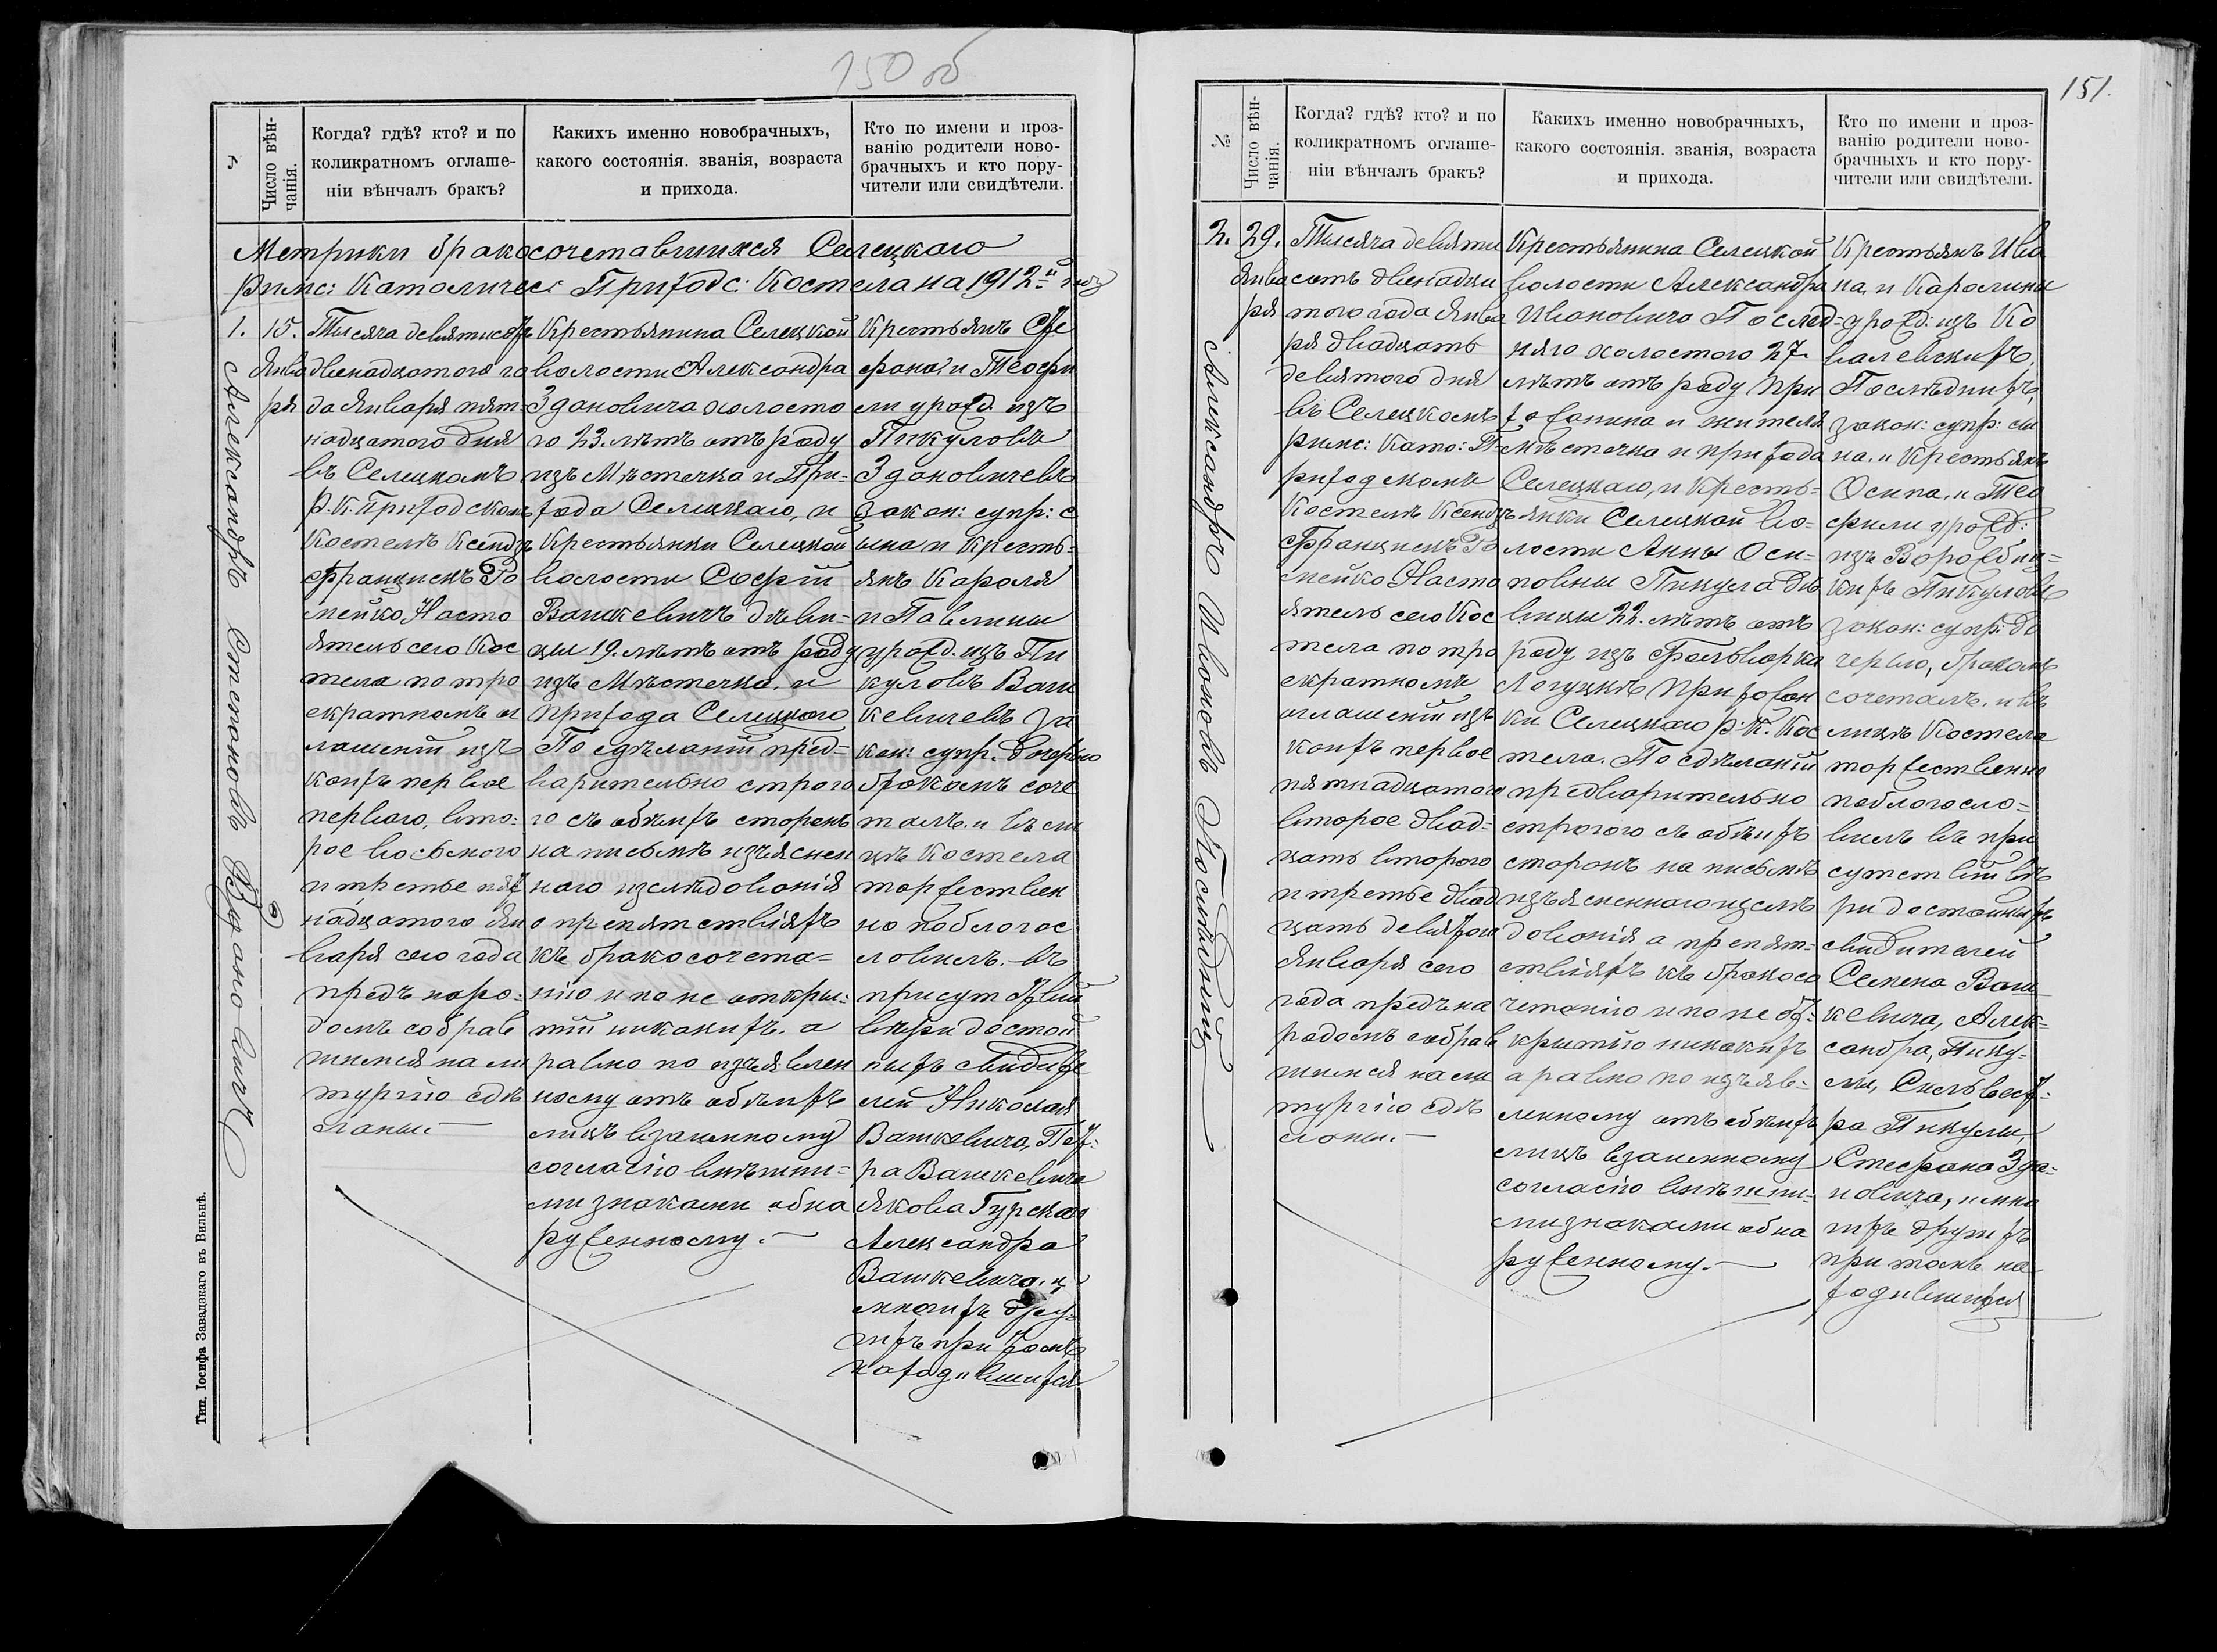 150 об
№
Число вѣн-
чанія.
Когда? гдѣ? кто? и по
коликратномъ оглаше-
ніи вѣнчалъ бракъ?
Какихъ именно новобрачныхъ,
какого состоянія. званія, возраста
и прихода.
Кто по имени и проз-
ванію родители ново-
брачныхъ и кто пору-
чители или свидѣтели.
Метрики бракосочетавшихся Селецкаго
Римс: Католичес: Приходс: Костела на 1912й годъ
1.
15.
Янва
ря
Александръ Степановъ Здановичъ
Тысяча девятисотъ
двенадцатого го
да Января пят-
надцатого дня
въ Селецкомъ
Р. К. Приходскомъ
Костелѣ Ксендзъ
Францискъ Ро
мейко Насто
ятель сего Кос
тела по тро
екратномъ ог
лашеніи изъ
коихъ первое
первого, вто-
рое восьмого
и третье пят
надцатого Ян
варя сего года
предъ наро-
домъ собрав
шимся на ли
тургію сдѣ
ланы.
Крестьянина Селецкой
волости Александра
Здановича холосто
го 23. лѣтъ отъ роду
изъ Мѣстечка и При-
хода Селецкаго, и
Крестьянки Селецкой
волости Софіи
Вашкевичъ дѣви-
цы 19. лѣтъ отъ роду
изъ Мѣстечка. и
прихода Селецкаго
По сдѣланіи пред-
варительно строго
го съ обѣихъ сторонъ
на письмѣ изъяснен
наго изслѣдованія
о препятствіяхъ
къ бракосочета-
нію и по не откры-
тіи никакихъ. а
равно по изъявлен
ному отъ обѣихъ
лицъ взаимному
согласію внѣшни-
ми знаками обна
руженному.
Крестьянъ Сте
фана, и Теофи
ли урожд. изъ
Пикуловъ
Здановичевъ
закон: супр: с
ына, и Кресть-
янъ Кароля
и Павлины
урожд. изъ Пи
куловъ Ваш
кевичевъ за
кон: супр. дочерью
бракомъ соче
талъ. и въ ли
цѣ Костела
торжествен
но поблагос
ловилъ. въ
присутствіи
вѣридостой
ныхъ свидѣте
лей Николая
Вашкевича, Пет-
ра Вашкевича
Якова Гурскаго
Александра
Вашкевича. и
многихъ дру-
гихъ при томъ
находившихся
Тип. Іосифа Завадзкаго въ Вильнѣ.
151.
№
Число вѣн-
чанія.
Когда? гдѣ? кто? и по
коликратномъ оглаше-
ніи вѣнчалъ бракъ?
Какихъ именно новобрачныхъ,
какого состоянія. званія, возраста
и прихода.
Кто по имени и проз-
ванію родители ново-
брачныхъ и кто пору-
чители или свидѣтели.
2.
29.
Янва
ря
Александръ Ивановъ Послѣдній
Тысяча девяти
сотъ двенадца
того года Янва
ря двадцать
девятого дня
въ Селецкомъ
римс: Като: П-
риходскомъ
Костелѣ Ксендзъ
Францискъ Ро
мейко Насто
ятель сего Кос
тела по тро
екратномъ
оглашеніи изъ
коихъ первое
пятнадцатого
второе двад-
цать второго
и третье двад
цать девятого
Января сего
года предъ на
родомъ собрав
шимся на ли
тургію сдѣ
ланы.
Крестьянина Селецкой
волости Александра
Ивановича Послед-
няго холостого 27.
лѣтъ отъ роду при
хожанина и жителя
мѣстечка и прихода
Селецкаго, и Кресть-
янки Селецкой Во-
лости Анны Оси-
повны Пикула дѣ
вицы 22. лѣтъ отъ
роду изъ Фольварка
Логуцкъ Прихожан
ки Селецкаго Р. К. Кос
тела. По сдѣланіи
предварительно
строгого съ обѣихъ
сторонъ на письмѣ
изъясненнаго изслѣ
дованія о препят-
ствіяхъ къ бракосо
четанію и по не от-
крытію никакихъ
а равно по изъяв-
ленному отъ обѣихъ
лицъ взаимному
согласію внѣшни-
ми знаками обна
руженному.
Крестьянъ Ива
на, и Каролины
урожд: изъ Ко
валевскихъ,
Послѣднихъ,
закон: супр: сы
на. и Крестьянъ
Осипа, и Тео
фили урожд:
изъ Ворожбиц-
кихъ Пикуловъ
закон: супр: до
черью, бракомъ
сочеталъ. и въ
лицѣ Костела
торжественно
поблагосло-
вилъ въ при
сутствіи вѣ
ридостойныхъ
свидѣтелей
Семена Ваш
кевича, Алек-
сандра, Пику-
лы, Сильвест-
ра Пикулы,
Стефана Зда-
новича, и мно
гихъ другихъ
при томъ на
ходившихся